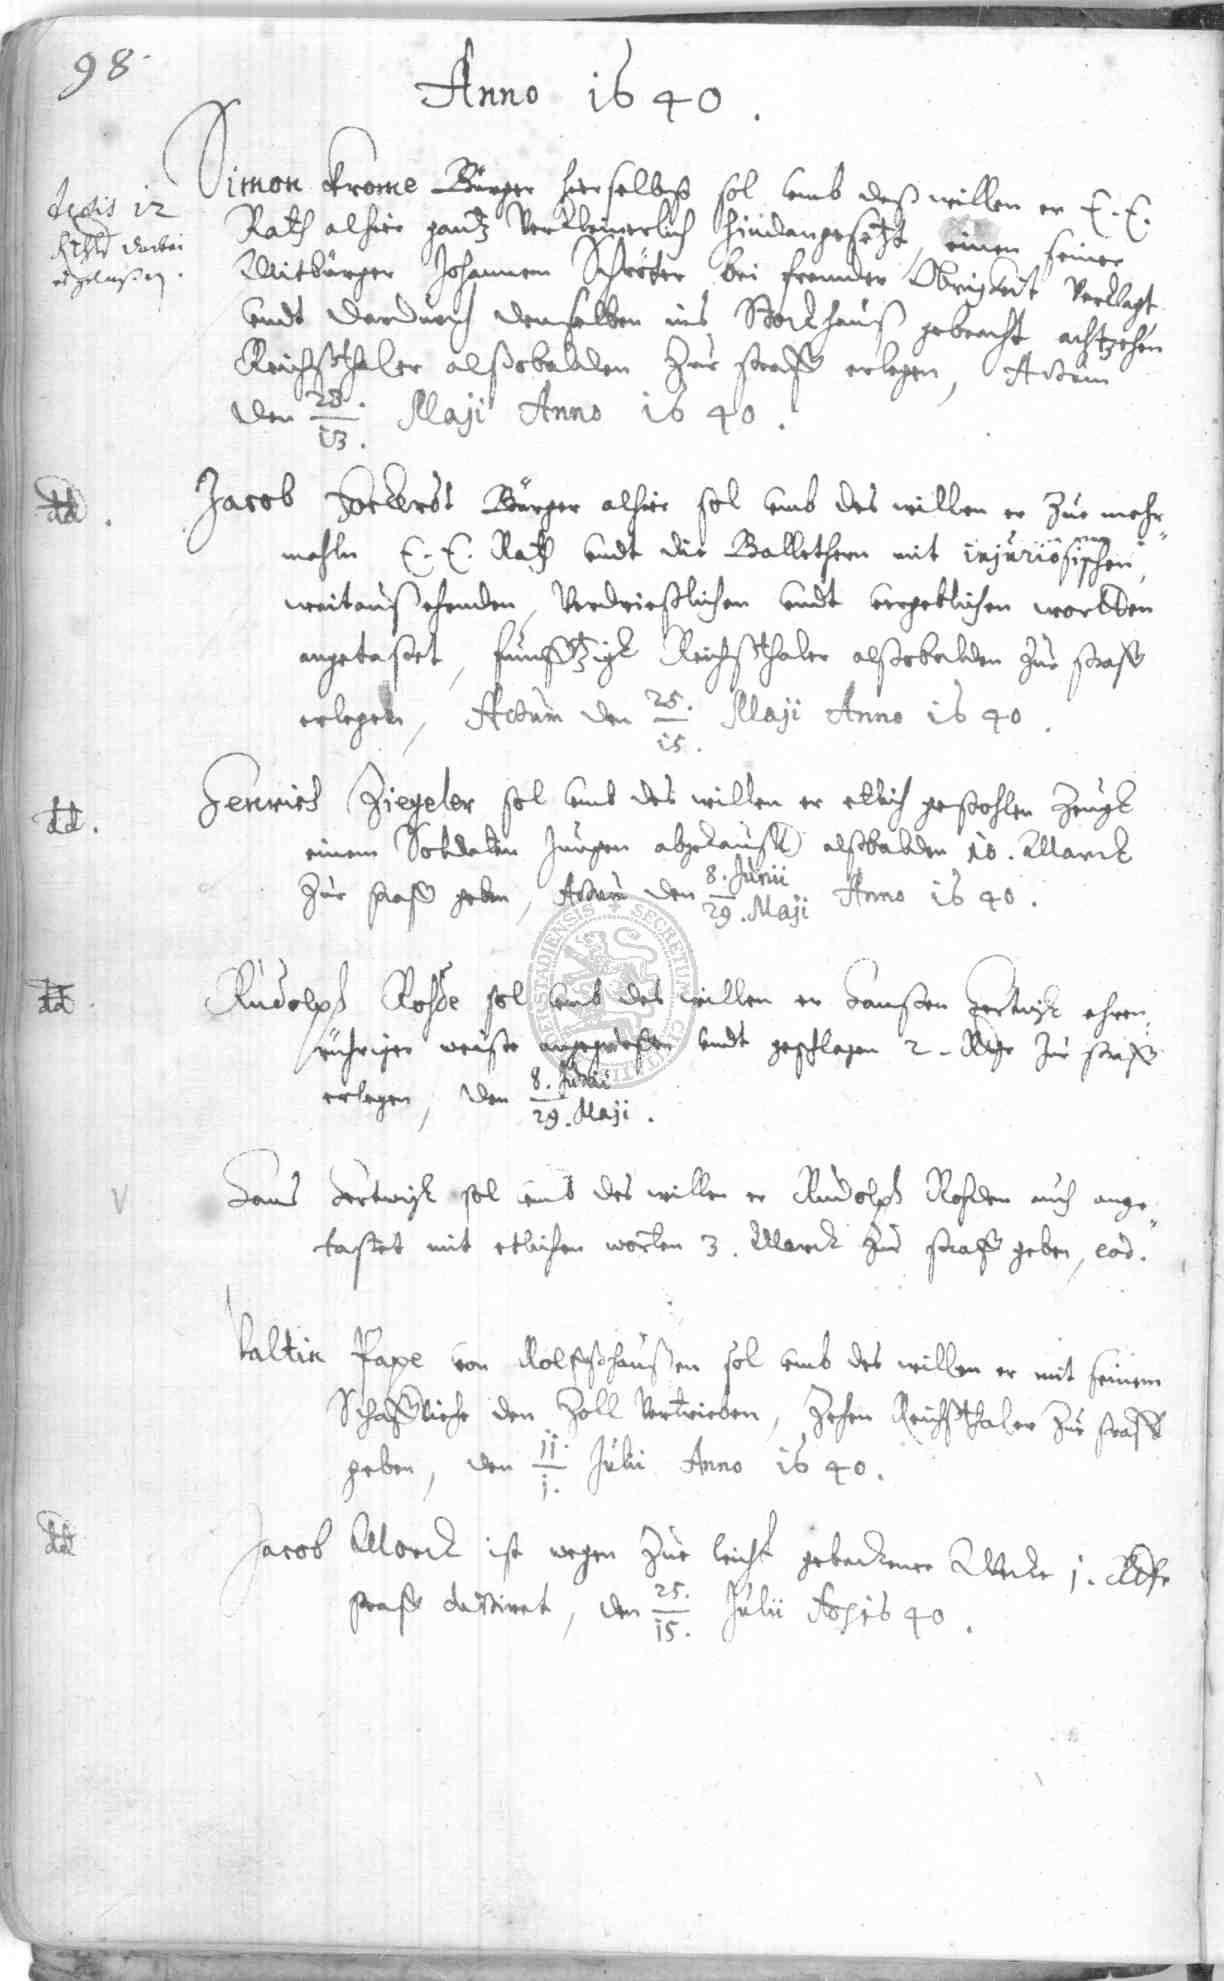 98.
Anno 1640.
Simon Krome Bürger hierselbst sol umb deß willen er E. E.
dedit 12
Rthlr darbei
ergelassen.
Rath alhier gantz verkleinerlich hindangesetzt, einen seiner
Mitbürger Johannem Schröter bei frembder Obrigkeit verklagt
undt dardurch denselben ins Stockhauß gebracht achtzehen
Reichsthaler alßobalden zur straff erlegen, Actum
den 23./13. Maji Anno 1640.
dd.
Jacob Bürger alhier sol umb des willen er zue mehr-
mahln E. E. Rath undt die mit injuriösischen,
weitaußehenden, verdrießlichen undt vergeblichen wortten
angetastet, funfftzigk Reichsthaler alßobalden zur straff
erlegen, Actum den 25./15. Maji Anno 1640.
dd.
Henrich Ziegeler sol umb des willen er etlich gestohlen Zeugk
einem Soldaten Jungen abgekaufft alßbalden 10. Marck
zur straff geben, Actum den 8. Junii/29. Maji Anno 1640.
dd.
Rudolph Rohde sol umb des willen er Hanßen Hertwigk ehren-
rühriger weiße angegriffen undt geschlagen 2. Rthr zur straff
erlegen, den 8. Junii/29. Maji.
V
Hans Hertwigk sol umb des willen er Rudolph Rohden auch ange-
tastet mit etlichen worten 3. Marck zur straff geben, eod.
Valtin Pape von Rolfshaußen sol umb des willen er mit seinem
Schaffviehe den Zoll vertrieben, Zehen Reichsthaler zur straff
geben, den 11./1. Julii Anno 1640.
dd
Jacob Marck ist wegen zue leicht gebackener Wecke 1. Rthr
straff dictiret, den 25./15. Julii Ao 1640.
SECRETUM